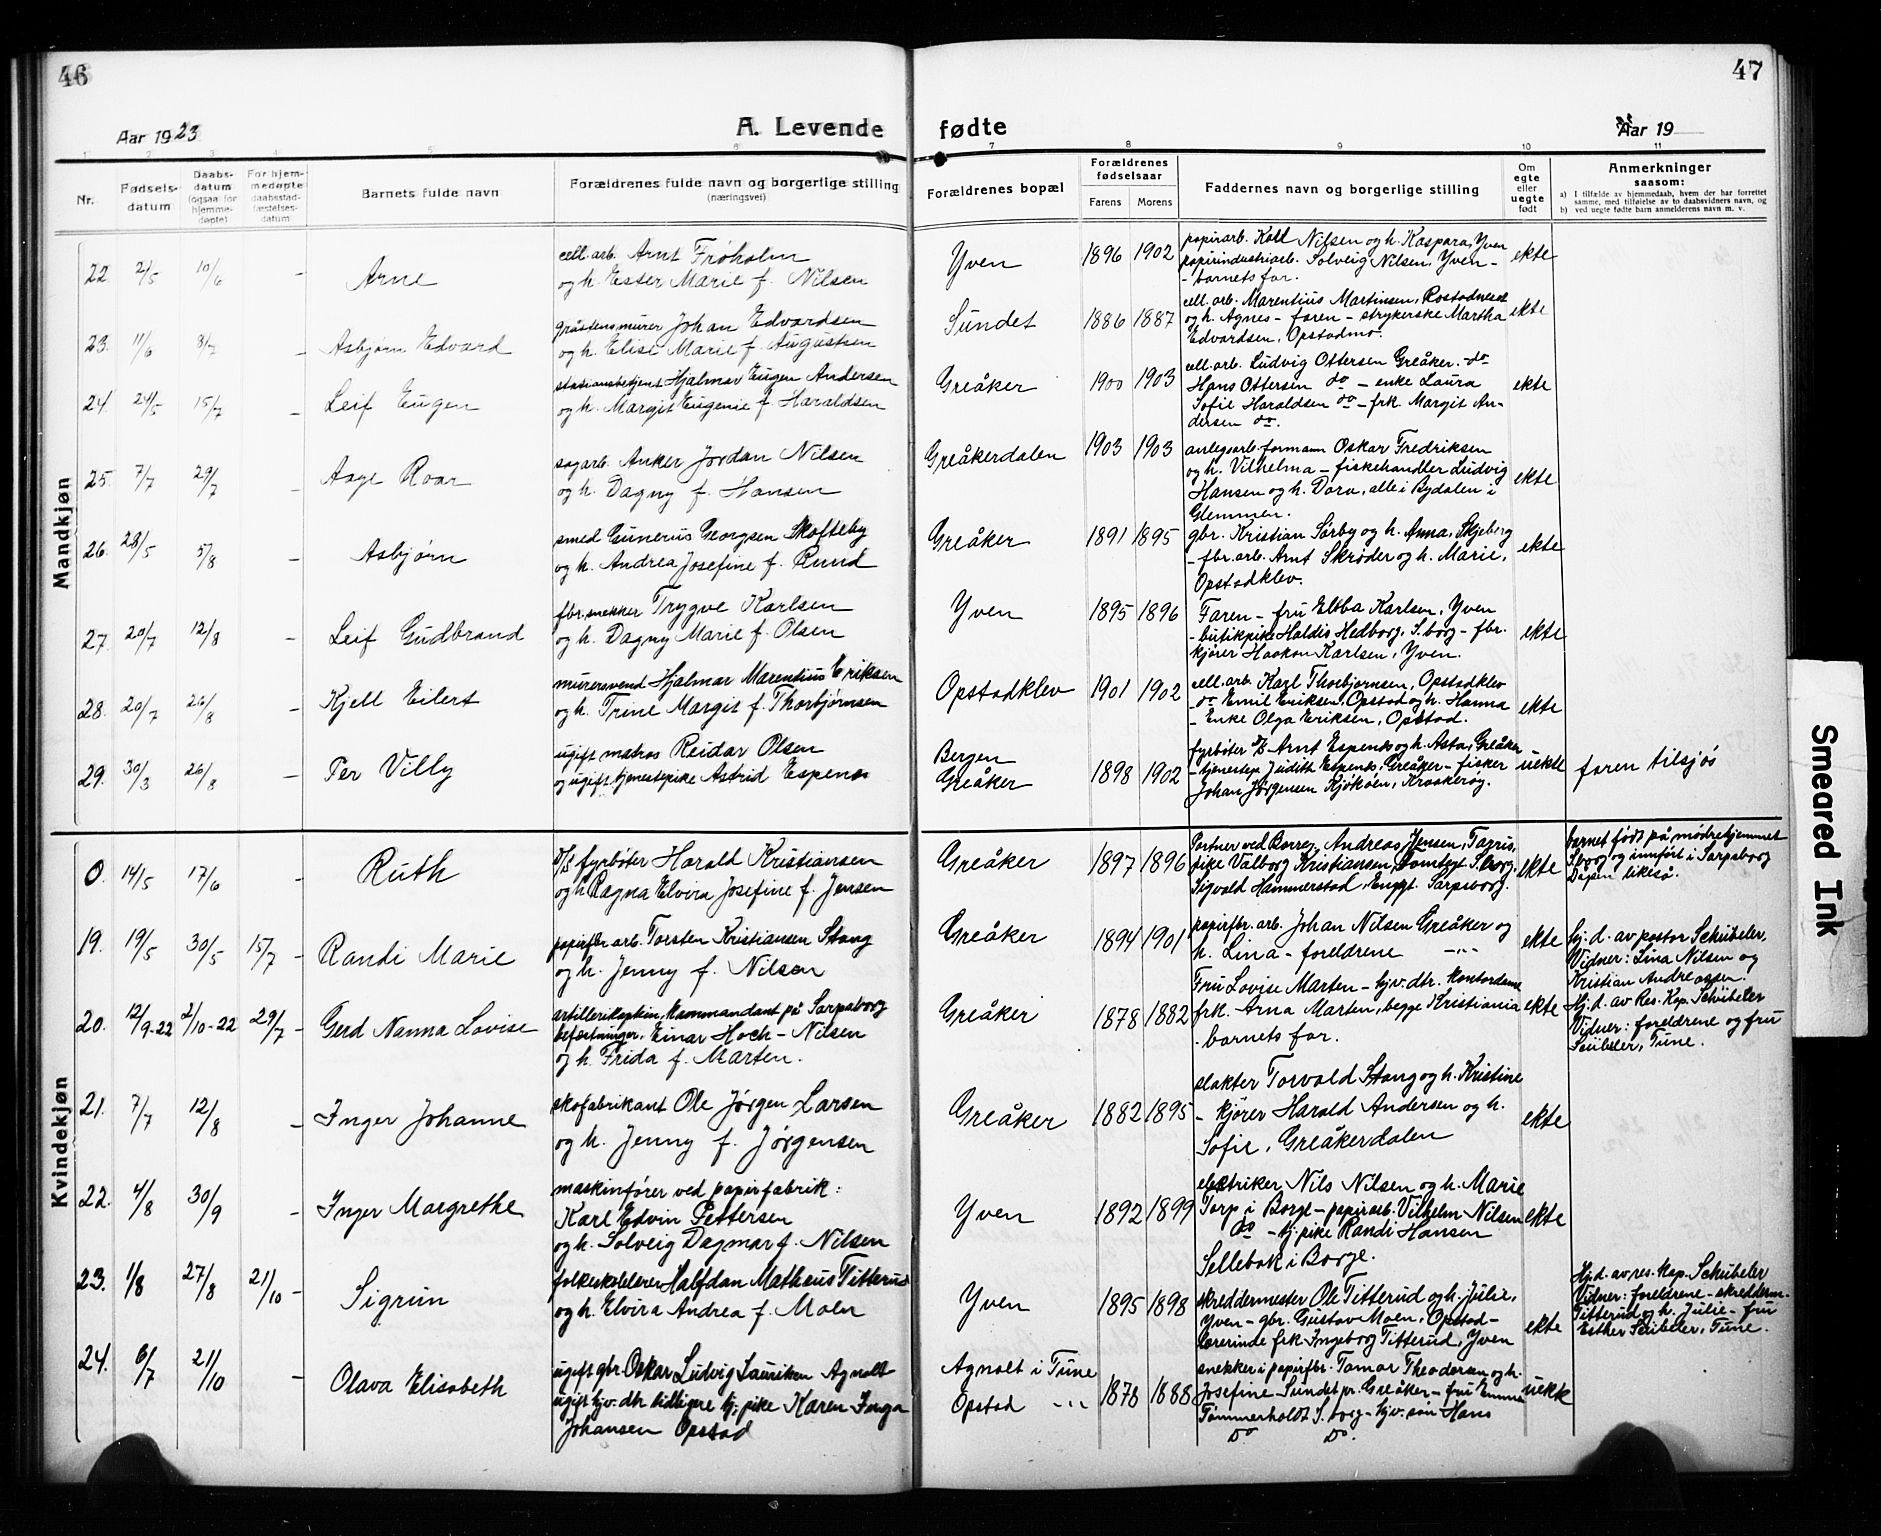 46
47
Aar 1923
A. Levende fødte
Aar 19
1 2 3 4 5 6 7 8 9 10 11
Nr. Fødsels-datum Daabs-datum (ogsaa for hjemme-døpte) For hjem-medøpte daabsstad-fæstelses-datum Barnets fulde navn Forældrenes fulde navn og borgerlige stilling (næringsvei) Forældrenes bopæl Forældrenes fødselsaar Farens Morens Faddernes navn og borgerlige stilling Om egte eller uegte født Anmerkninger saasom:
a) I tilfælde av hjemmedaab, hvem der har forrettet samme, med tilføielse av to daabsvidners navn, og
b) ved uegte fødte barn anmelderens navn m. v.
Mandkjøn
22. 2/5 10/6 – Arne
cell. arb. Arnt Frøholm
og h. Ester Marie f. Nilsen
Yven 1896 1902
papirarb. Koll Nilsen og h. Kaspara, Yven
papirindustriarb. Solveig Nilsen, Yven –
– barnets far.
ekte
23. 11/6 8/7 – Asbjørn Edvard
gråstensmurer Johan Edvardsen
og h. Elise Marie f. Augustsen
Sundet 1886 1887
cell. arb. Marentius Martinsen, Rostadneset
og h. Agnes – faren – strykerske Martha
Edvardsen, Opstadmo.
ekte
24. 24/5 15/7 – Leif Eugen
stationsbetjent Hjalmar Eugen Andersen
og h. Margit Eugenie f. Haraldsen
Greåker 1900 1903
cell. arb. Ludvig Ottersen Greåker. – do
Hans Ottersen do – enke Laura
Sofie Haraldsen do – frk. Margit An-
dersen do.
ekte
25. 7/7 29/7 – Aage Roar
sagarb. Anker Jordan Nilsen
og h. Dagny f. Hansen
Greåkerdalen 1903 1903
anlegsarb. formann Oskar Fredriksen
og h. Vilhelma – fiskehandler Ludvig
Hansen og h. Dora, alle i Bydalen i
Glemmen.
ekte
26. 28/5 5/8 – Asbjørn
smed Gunerus Georgsen Skofteby
og h. Andrea Josefine f. Rund
Greåker 1891 1895
gbr. Kristian Sørby og h. Anna, Skjeberg
– fbr. arb. Arnt Skrøder og h. Marie,
Opstadklev.
ekte
27. 20/7 12/8 – Leif Gudbrand
fbr. snekker Trygve Karlsen
og h. Dagny Marie f. Olsen
Yven 1895 1896
Faren – fru Ebba Karlsen, Yven
– butikpike Haldis Hedborg, S.borg – fbr.
kjører Haakon Karlsen, Yven.
ekte
28. 20/7 26/8 – Kjell Eilert
murersvend Hjalmar Marentius Eriksen
og h. Trine Margit f. Thorbjørnsen
Opstadklev 1901 1902
cell. arb. Karl Thorbjørnsen, Opstadklev
– do Emil Eriksen, Opstad og h. Hanna
– Enke Olga Eriksen, Opstad.
ekte
29. 30/3 26/8 – Per Villy
ugift matros Reidar Olsen
og ugift tjenestepike Astrid Espenes
Bergen
Greåker 1898 1902
fyrbøter D/S Arnt Espenes og h. Asta, Greåker
– tjenestep. Judith Espenes, Greåker – fisker
Johan Jørgensen Kjøkøen, Kraakerøy.
uekte
faren tilsjøs
Kvindekjøn
0. 14/5 17/6 – Ruth
D/S fyrbøter Harald Kristiansen
og h. Ragna Elvira Josefine f. Jensen
Greåker 1897 1896
Portner ved Borreg. Andreas Jensen,
pike Valborg Kristiansen, Tomtegt. S.borg.
Sigvald Hammerstad, Enggt. Sarpsborg.
ekte
barnet født på mødrehjemmet
S.borg og innført i Sarpsborg
Dåpen likeså.
19. 19/5 30/5 15/7 – Randi Marie
papirfbr. arb. Torsten Kristiansen Stang
og h. Jenny f. Nilsen
Greåker 1894 1901
papirfbr. arb. Johan Nilsen Greåker og
h. Lina – foreldrene –"–
ekte
hj. d. av pastor Schübeler,
Vidner: Lina Nilsen og
Kristian Andreassen.
20. 12/9-22 2/10-22 29/7 – Gerd Nanna Lovise
artillerikaptein, Kommandant på Sarpsborg
befæstninger. Einar Hoch-Nilsen
og h. Frida f. Marten.
Greåker 1878 1882
Fru Lovise Marten – hjv. dtr. kontordame
frk. Arna Marten, begge Kristiania
– barnets far.
ekte
Hj. d. av Res. Kap. Schübeler
Vidner: foreldrene og fru
Scübeler, Tune.
21. 7/7 12/8 – Inger Johanne
skofabrikant Ole Jørgen Larsen
og h. Jenny f. Jørgensen
Greåker 1882 1895
slakter Torvald Stang og h. Kristine
– kjører Harald Andersen og h.
Sofie, Greåkerdalen
ekte
22. 4/8 30/9 – Inger Margrethe
maskinfører ved papirfabrik:
Karl Edvin Pettersen
og h. Solveig Dagmar f. Nilsen
Yven 1892 1899
elektriker Nils Nilsen og h. Marie
Torp i Borge – papirarb. Vilhelm Nilsen
do – tj. pike Randi Hansen
Sellebak i Borge.
ekte
23. 1/8 27/8 21/10 – Sigrun
folkeskolelærer Halfdan Matheus Titterud
og h. Elvira Andrea f. Moen
Yven 1895 1898
skreddermester Ole Titterud og h. Julie,
Yven – gbr. Gustav Moen, Opstad –
lærerinde frk. Ingeborg Titterud, Yven
ekte
Hj. d. av res. kap. Schübeler
Vidner: foreldrene – skredderm.
Titterud og h. Julie – fru
Esther Scübeler, Tune.
24. 6/7 21/10 – Olava Elisabeth
ugift gbr. Oskar Ludvig Lauritsen Agnalt
ugift hjv. dtr. tidligere tj. pike Karen Inga
Johansen Opstad
Agnalt i Tune
Opstad –"– 1878 1888
snekker i papirfbr. Tomar Theodorsen og h.
Josefine – Sundet pr. Greåker – fru Emma
Tømmerholdt S.borg – hjv. søn Hans
Do Do.
uekte
Smeared Ink